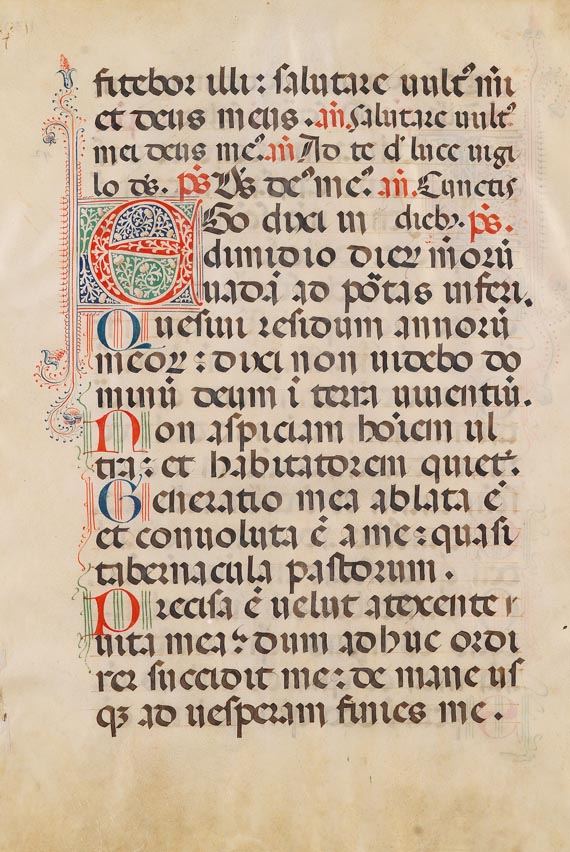 fitebor illi : salutare uult᷒ mi
et deus meus . añ. Salutare uult᷒
mei deus me᷒. añ Ad te d̓ luce uigi
lo ds̄. ps̄ Ds̄ de᷒ me᷒. añ. Cunctis
EGo dixi in diebꝫ. ps̄.
dimidio dieꝝ moꝝ
uadā ad p̄o̊tas inferi.
Quesiui residuum annoꝝ
meoꝝ : dixi non uidebo do
minū deum ī terra uiuentiū.
Non aspiciam hoīem ul
tra : et habitatorem quiet᷒.
Generatio mea ablata ē
et conuoluta ē a me : quasi
tabernacula pastorum .
Precisa ē uelut a texente
uita mea : dum adhuc ordi
rer succidit me : de mane us
qꝫ ad uesperam finies me .